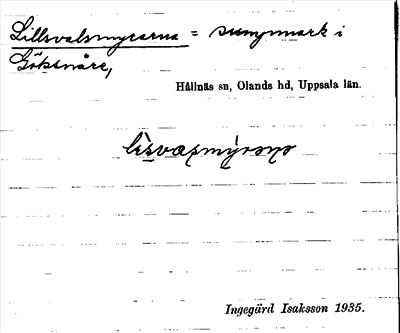 Lillsvalsmyrarna = sumpmark i
Göksnåre,
Hållnäs sn, Olands hd, Uppsala län.
Ingegärd Isaksson 1935.